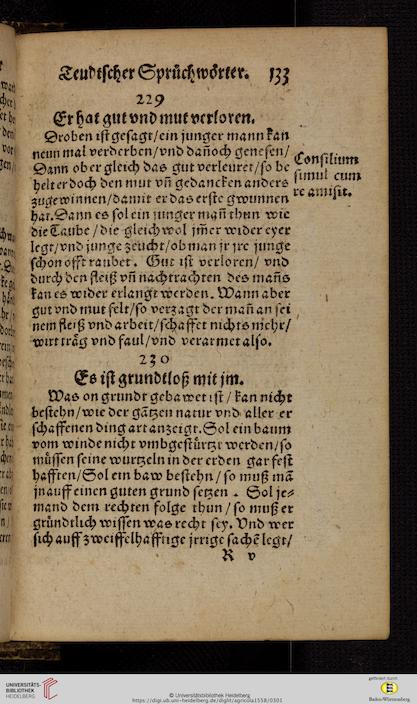 Teudtscher Sprüchwörter. 133
229
Er hat gut vnd mut verloren.
Droben ist gesagt/ein junger mann kan
neun mal verderben/vnd dañoch genesen/
Dann ob er gleich das gut verleuret/so be
helt er doch den mut vñ gedancken anders
zugewinnen/damit er das erste gwunnen
hat. Dann es sol ein junger mañ thun wie
die Taube/die gleich wol jm̃er wider eyer
legt/vnd junge zeucht/ob man jr jre junge
schon offt raubet. Gut ist verloren/vnd
durch den fleiß vñ nachtrachten des mañs
kan es wider erlangt werden. Wann aber
gut vnd mut felt/so verzagt der mañ an sei
nem fleiß vnd arbeit/schaffet nichts mehr/
wirt träg vnd faul/vnd verarmet also.
Consilium
simul cum
re amisit.
230
Es ist grundtloß mit jm.
Was on grundt gebawet ist/kan nicht
bestehn/wie der gãtzen natur vnd aller er
schaffenen ding art anzeigt. Sol ein baum
vom winde nicht vmbgestürtzt werden/so
müssen seine wurtzeln in der erden gar fest
hafften/Sol ein baw bestehn/so muß mã
jn auff einen guten grund setzen. Sol je=
mand dem rechten folge thun/so muß er
gründtlich wissen was recht sey. Vnd wer
sich auff zweiffelhafftige jrrige sachẽ legt/
R v
UNIVERSITÄTS-
BIBLIOTHEK
HEIDELBERG
© Universitätsbibliothek Heidelberg
https://digi.ub.uni-heidelberg.de/diglit/agricola1558/0301
gefördert durch
Baden-Württemberg